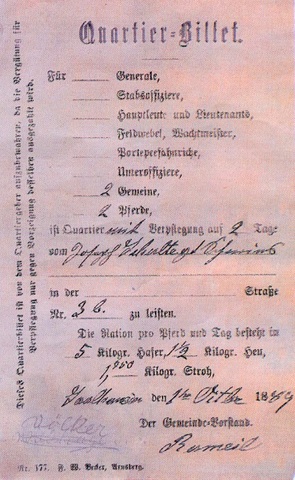 Quartier-Billet.
Für Generale,
Stabsoffiziere,
Hauptleute und Lieutenants,
Feldwebel, Wachtmeister,
Portepeefähnriche,
Unteroffiziere,
2 Gemeine,
2 Pferde,
ist Quartier mit Verpflegung auf 2 Tage
vom Joseph Schulte
in der Straße
Nr. 36. zu leisten.
Die Ration pro Pferd und Tag besteht in
5 Kilogr. Hafer, 1½ Kilogr. Heu,
1,750 Kilogr. Stroh,
den 1ten 18
Der Gemeinde-Vorstand.
Rameil
Nr. 177. F. W. Becker, Arnsberg.
Dieses Quartierbillet ist von dem Quartiergeber aufzubewahren, da die Vergütung für
Verpflegung nur gegen Vorzeigung desselben ausgezahlt wird.